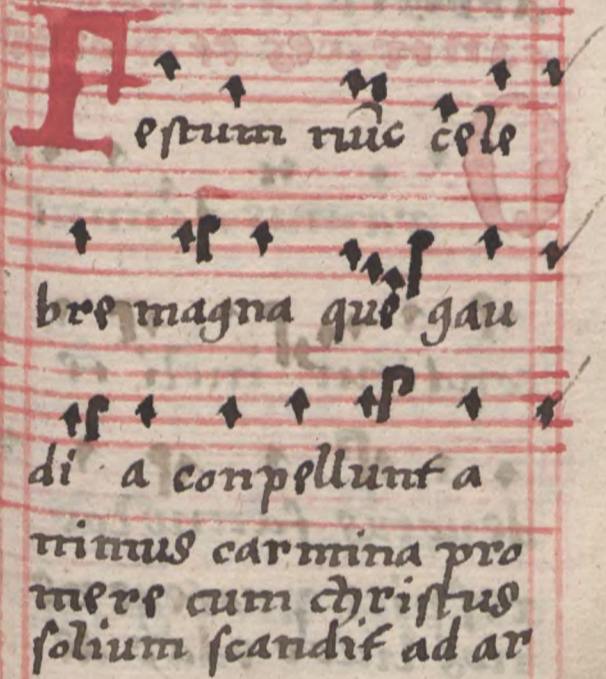 Festum nūc cele
bre magna que gau
di a conpellunt a
nimus carmina pro
mere cum christus
solium scandit ad ar